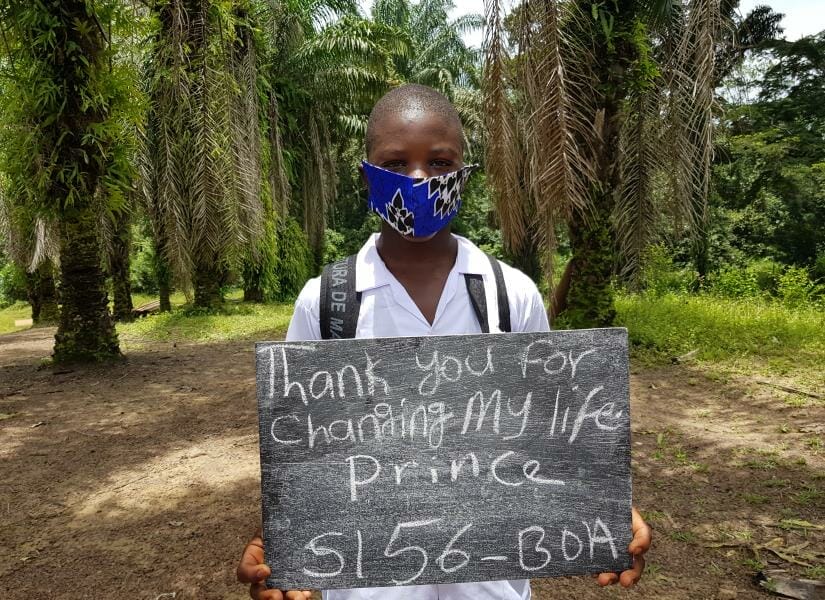 Thank you for
Changing My life.
Prince
S156-BOA
URA DE MA